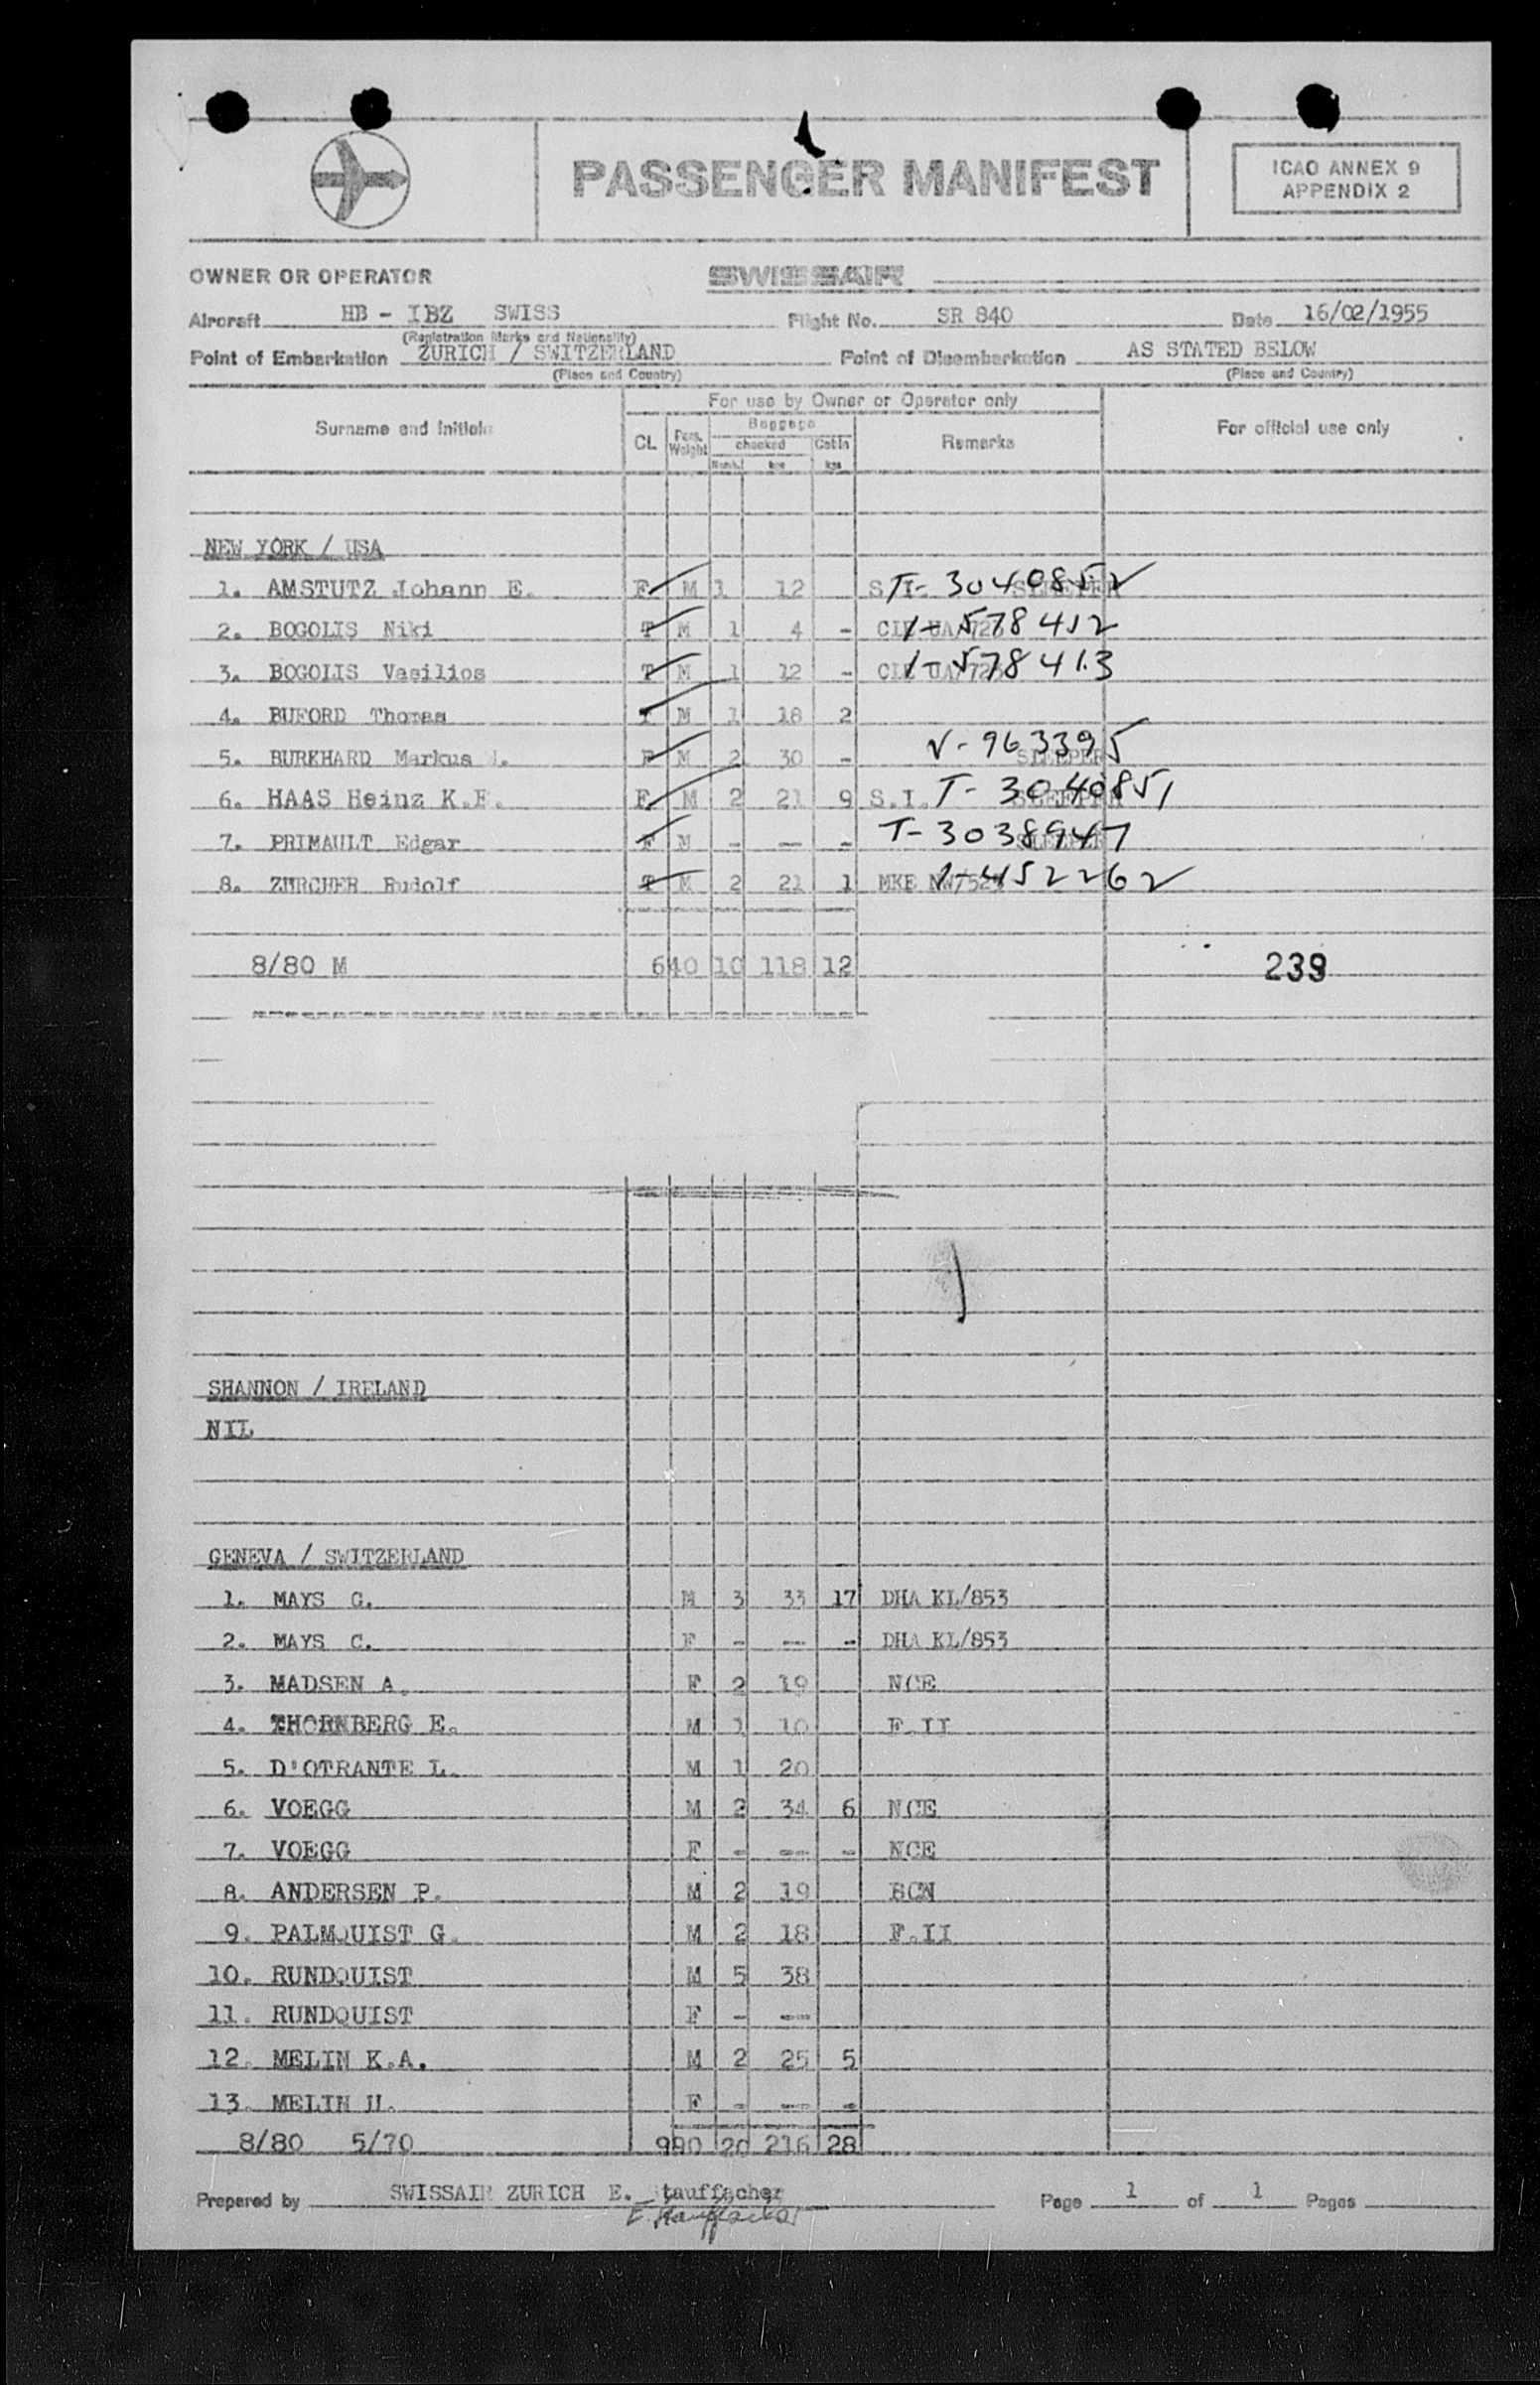 PASSENGER MANIFEST
ICAO ANNEX 9
APPENDIX 2
OWNER OR OPERATOR SWISSAIR
Aircraft HB - IBZ SWISS Flight No. SR 840 Date 16/02/1955
(Registration Marks and Nationality)
Point of Embarkation ZURICH / SWITZERLAND Point of Disembarkation AS STATED BELOW
(Place and Country) (Place and Country)
For use by Owner or Operator only
Surname and initials CL Pass. Weight Baggage checked Numb. kgs Cabin kgs Remarks For official use only
NEW YORK / USA
1. AMSTUTZ Johann E. F M 1 12 S.I. SLEEPER T-3040852
2. BOGOLIS Niki T M 1 4 - 1-578412
3. BOGOLIS Vasilios T M 1 12 - 1-578413
4. BUFORD Thomas T M 1 18 2
5. BURKHARD Markus F M 2 30 - SLEEPER V-963395
6. HAAS Heinz K.F. F M 2 21 9 S.I. SLEEPER T-3040851
7. PRIMAULT Edgar F M - -- - SLEEPER T-3038947
8. ZURCHER Rudolf T M 2 21 1 MKE NW/ 1-452262
8/80 M 640 10 118 12 239
SHANNON / IRELAND
NIL
GENEVA / SWITZERLAND
1. MAYS G. M 3 33 17 DHA KL/853
2. MAYS C. F - -- - DHA KL/853
3. MADSEN A. F 2 19 NCE
4. THORNBERG E. M 1 10 F.II
5. D'OTRANTE L. M 1 20
6. VOEGG M 2 34 6 NCE
7. VOEGG F - -- - NCE
8. ANDERSEN P. M 2 19 BCN
9. PALMQUIST G. M 2 18 F.II
10. RUNDQUIST M 5 38
11. RUNDQUIST F - --
12. MELIN K.A. M 2 25 5
13. MELIN U. F - -- -
8/80 5/70 990 20 216 28
Prepared by SWISSAIR ZURICH E. Stauffacher Page 1 of 1 Pages
E. Stauffacher